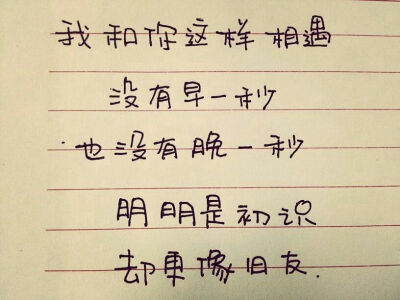 我和你这样相遇
没有早一秒
也没有晚一秒
明明是初识
却更像旧友.